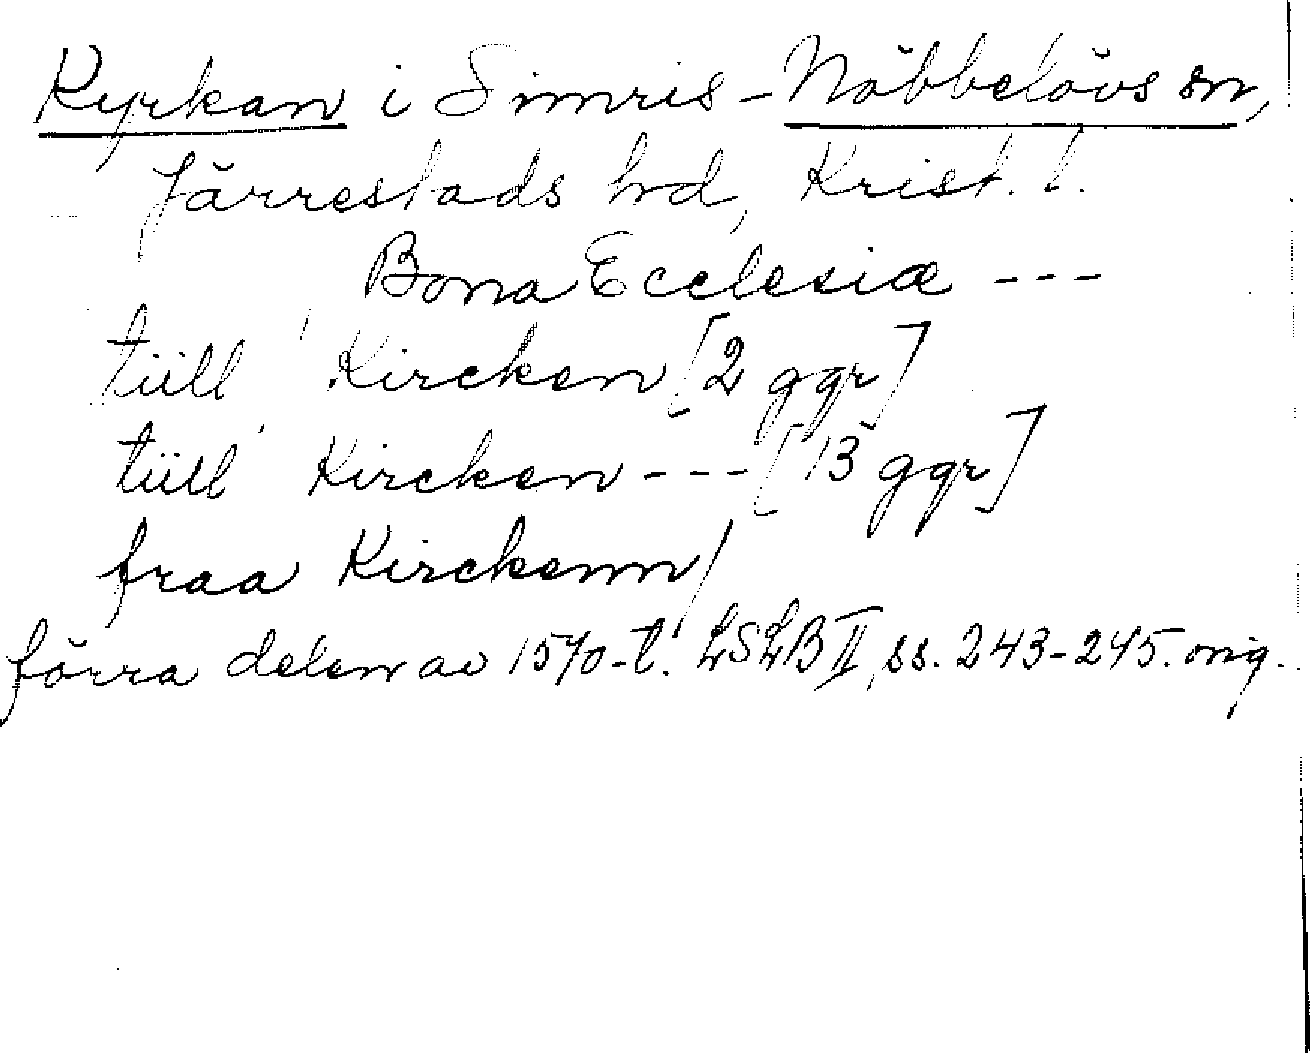 Kyrkan i Simris-Nöbbelövs sn,
Järrestads hd, Krist. l.
Bona Ecclesiæ ---
tüll Kircken [2 ggr]
tüll Kircken --- [13 ggr]
fraa Kirckenn/
förra delen av 1570-t. LSLB II, ss. 243-245. orig.